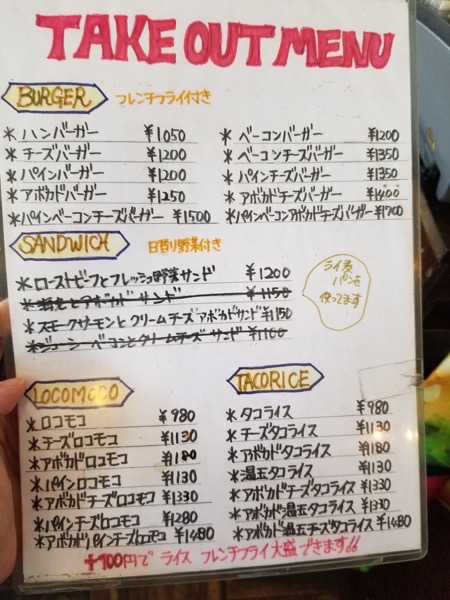 TAKE OUT MENU
BURGER フレンチフライ付き
* ハンバーガー ¥1050
* チーズバーガー ¥1200
* パインバーガー ¥1200
* アボカドバーガー ¥1250
* パインベーコンチーズバーガー ¥1500
* ベーコンバーガー ¥1200
* ベーコンチーズバーガー ¥1350
* パインチーズバーガー ¥1350
* アボカドチーズバーガー ¥1400
* パインベーコンアボカドチーズバーガー ¥1700
SANDWICH 日替り野菜付き
* ローストビーフとフレッシュ野菜サンド ¥1200
* 海老とアボカド サンド ¥1150
* スモークサーモンとクリームチーズアボカドサンド ¥1150
* ベーコンとクリームチーズ サンド ¥1100
ライ麦
パンを
使ってます
LOCOMOCO
* ロコモコ ¥980
* チーズロコモコ ¥1130
* アボカドロコモコ ¥1180
* パインロコモコ ¥1130
* アボカドチーズロコモコ ¥1330
* パインチーズロコモコ ¥1280
* アボカドパインチーズロコモコ ¥1480
TACORICE
* タコライス ¥980
* チーズタコライス ¥1130
* アボカドタコライス ¥1180
* 温玉タコライス ¥1130
* アボカドチーズタコライス ¥1330
* アボカド温玉タコライス ¥1330
* アボカド温玉チーズタコライス ¥1480
+100円で ライス フレンチフライ大盛できます!!